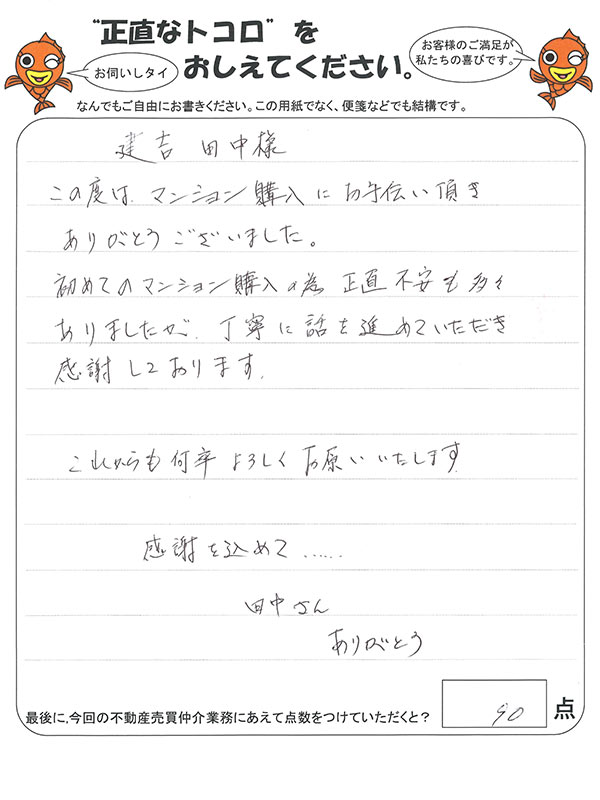 "正直なトコロ"を
お伺いしタイ
おしえてください。
お客様のご満足が
私たちの喜びです。
なんでもご自由にお書きください。この用紙でなく、便箋などでも結構です。
建吉 田中様
この度は、マンション購入にお手伝い頂き
ありがとうございました。
初めてのマンション購入の為 正直不安も多々
ありましたが、丁寧に話を進めていただき
感謝しております。
これからも何卒よろしくお願いいたします
感謝を込めて……
田中さん
ありがとう
最後に、今回の不動産売買仲介業務にあえて点数をつけていただくと?
90 点